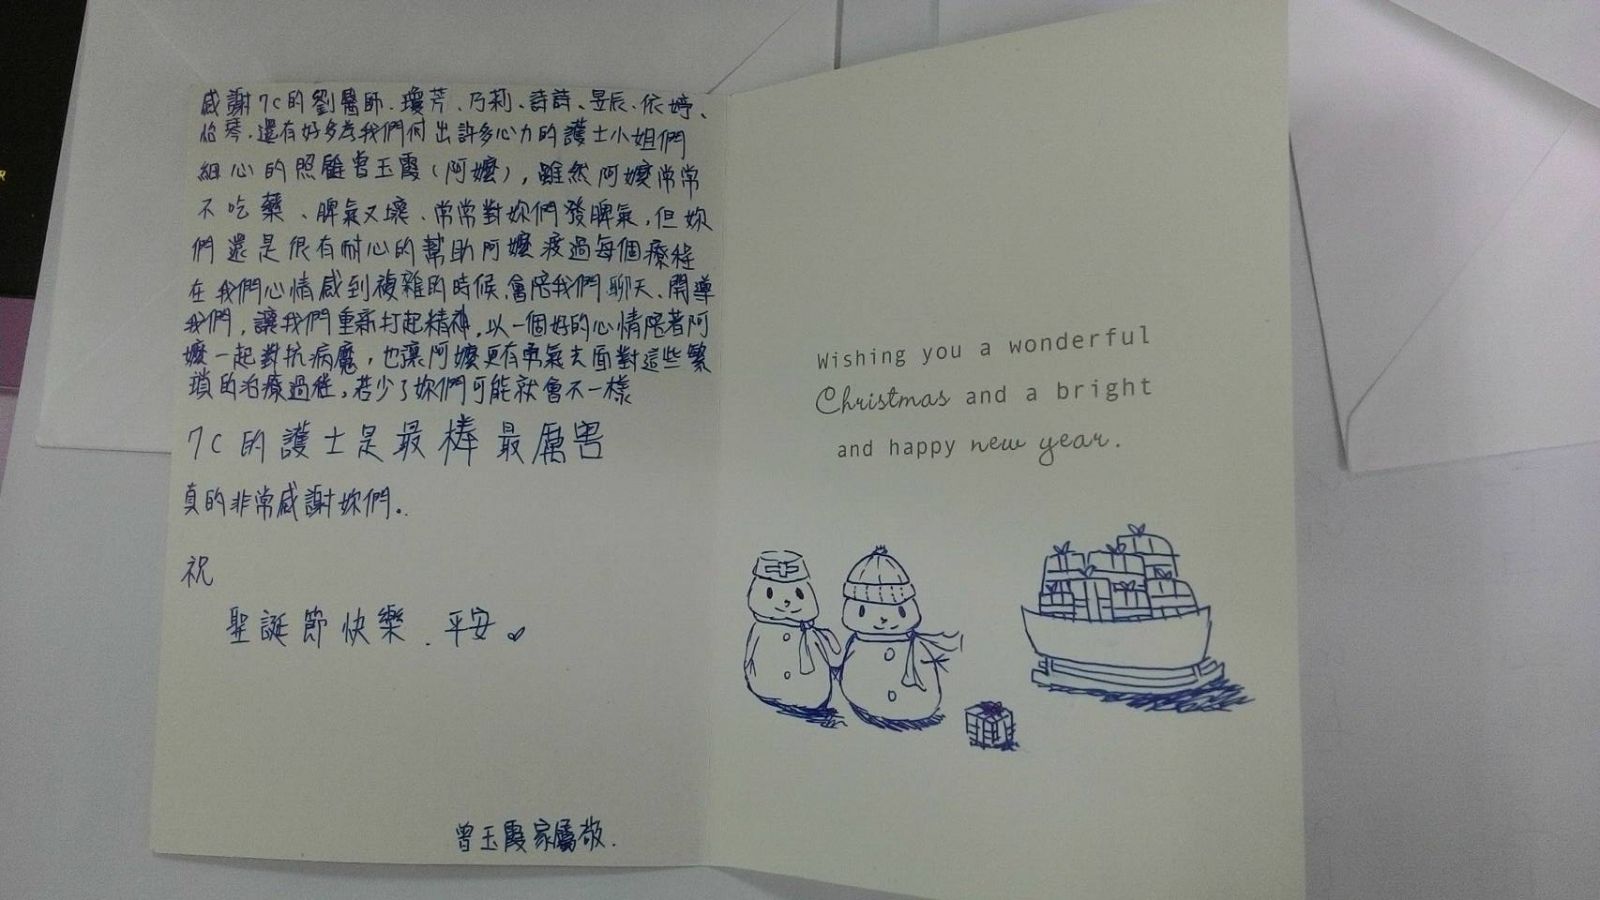 感謝7C的劉醫師、瓊芳、乃莉、詩詩、昱辰、依婷、
怡琴、還有好多為我們付出許多心力的護士小姐們
細心的照顧曾玉霞(阿嬤)，雖然阿嬤常常
不吃藥、脾氣又壞、常常對妳們發脾氣，但妳
們還是很有耐心的幫助阿嬤渡過每個療程
在我們心情感到複雜的時候，會陪我們聊天、開導
我們，讓我們重新打起精神，以一個好的心情陪著阿
嬤一起對抗病魔，也讓阿嬤更有勇氣去面對這些繁
瑣的治療過程，若少了妳們可能就會不一樣
7C的護士是最棒最厲害
真的非常感謝妳們。
祝
聖誕節快樂、平安
曾玉霞家屬敬.
Wishing you a wonderful
Christmas and a bright
and happy new year.